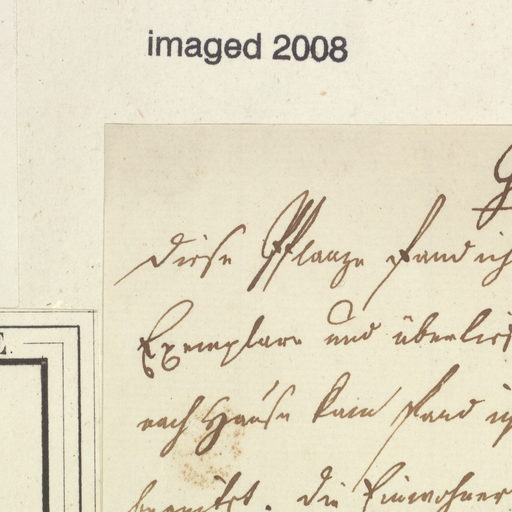 imaged 2008
Diese Pflanze fand ich
Exemplare und überlies
E.
nach Hause kam fand ich
Die Einwohner